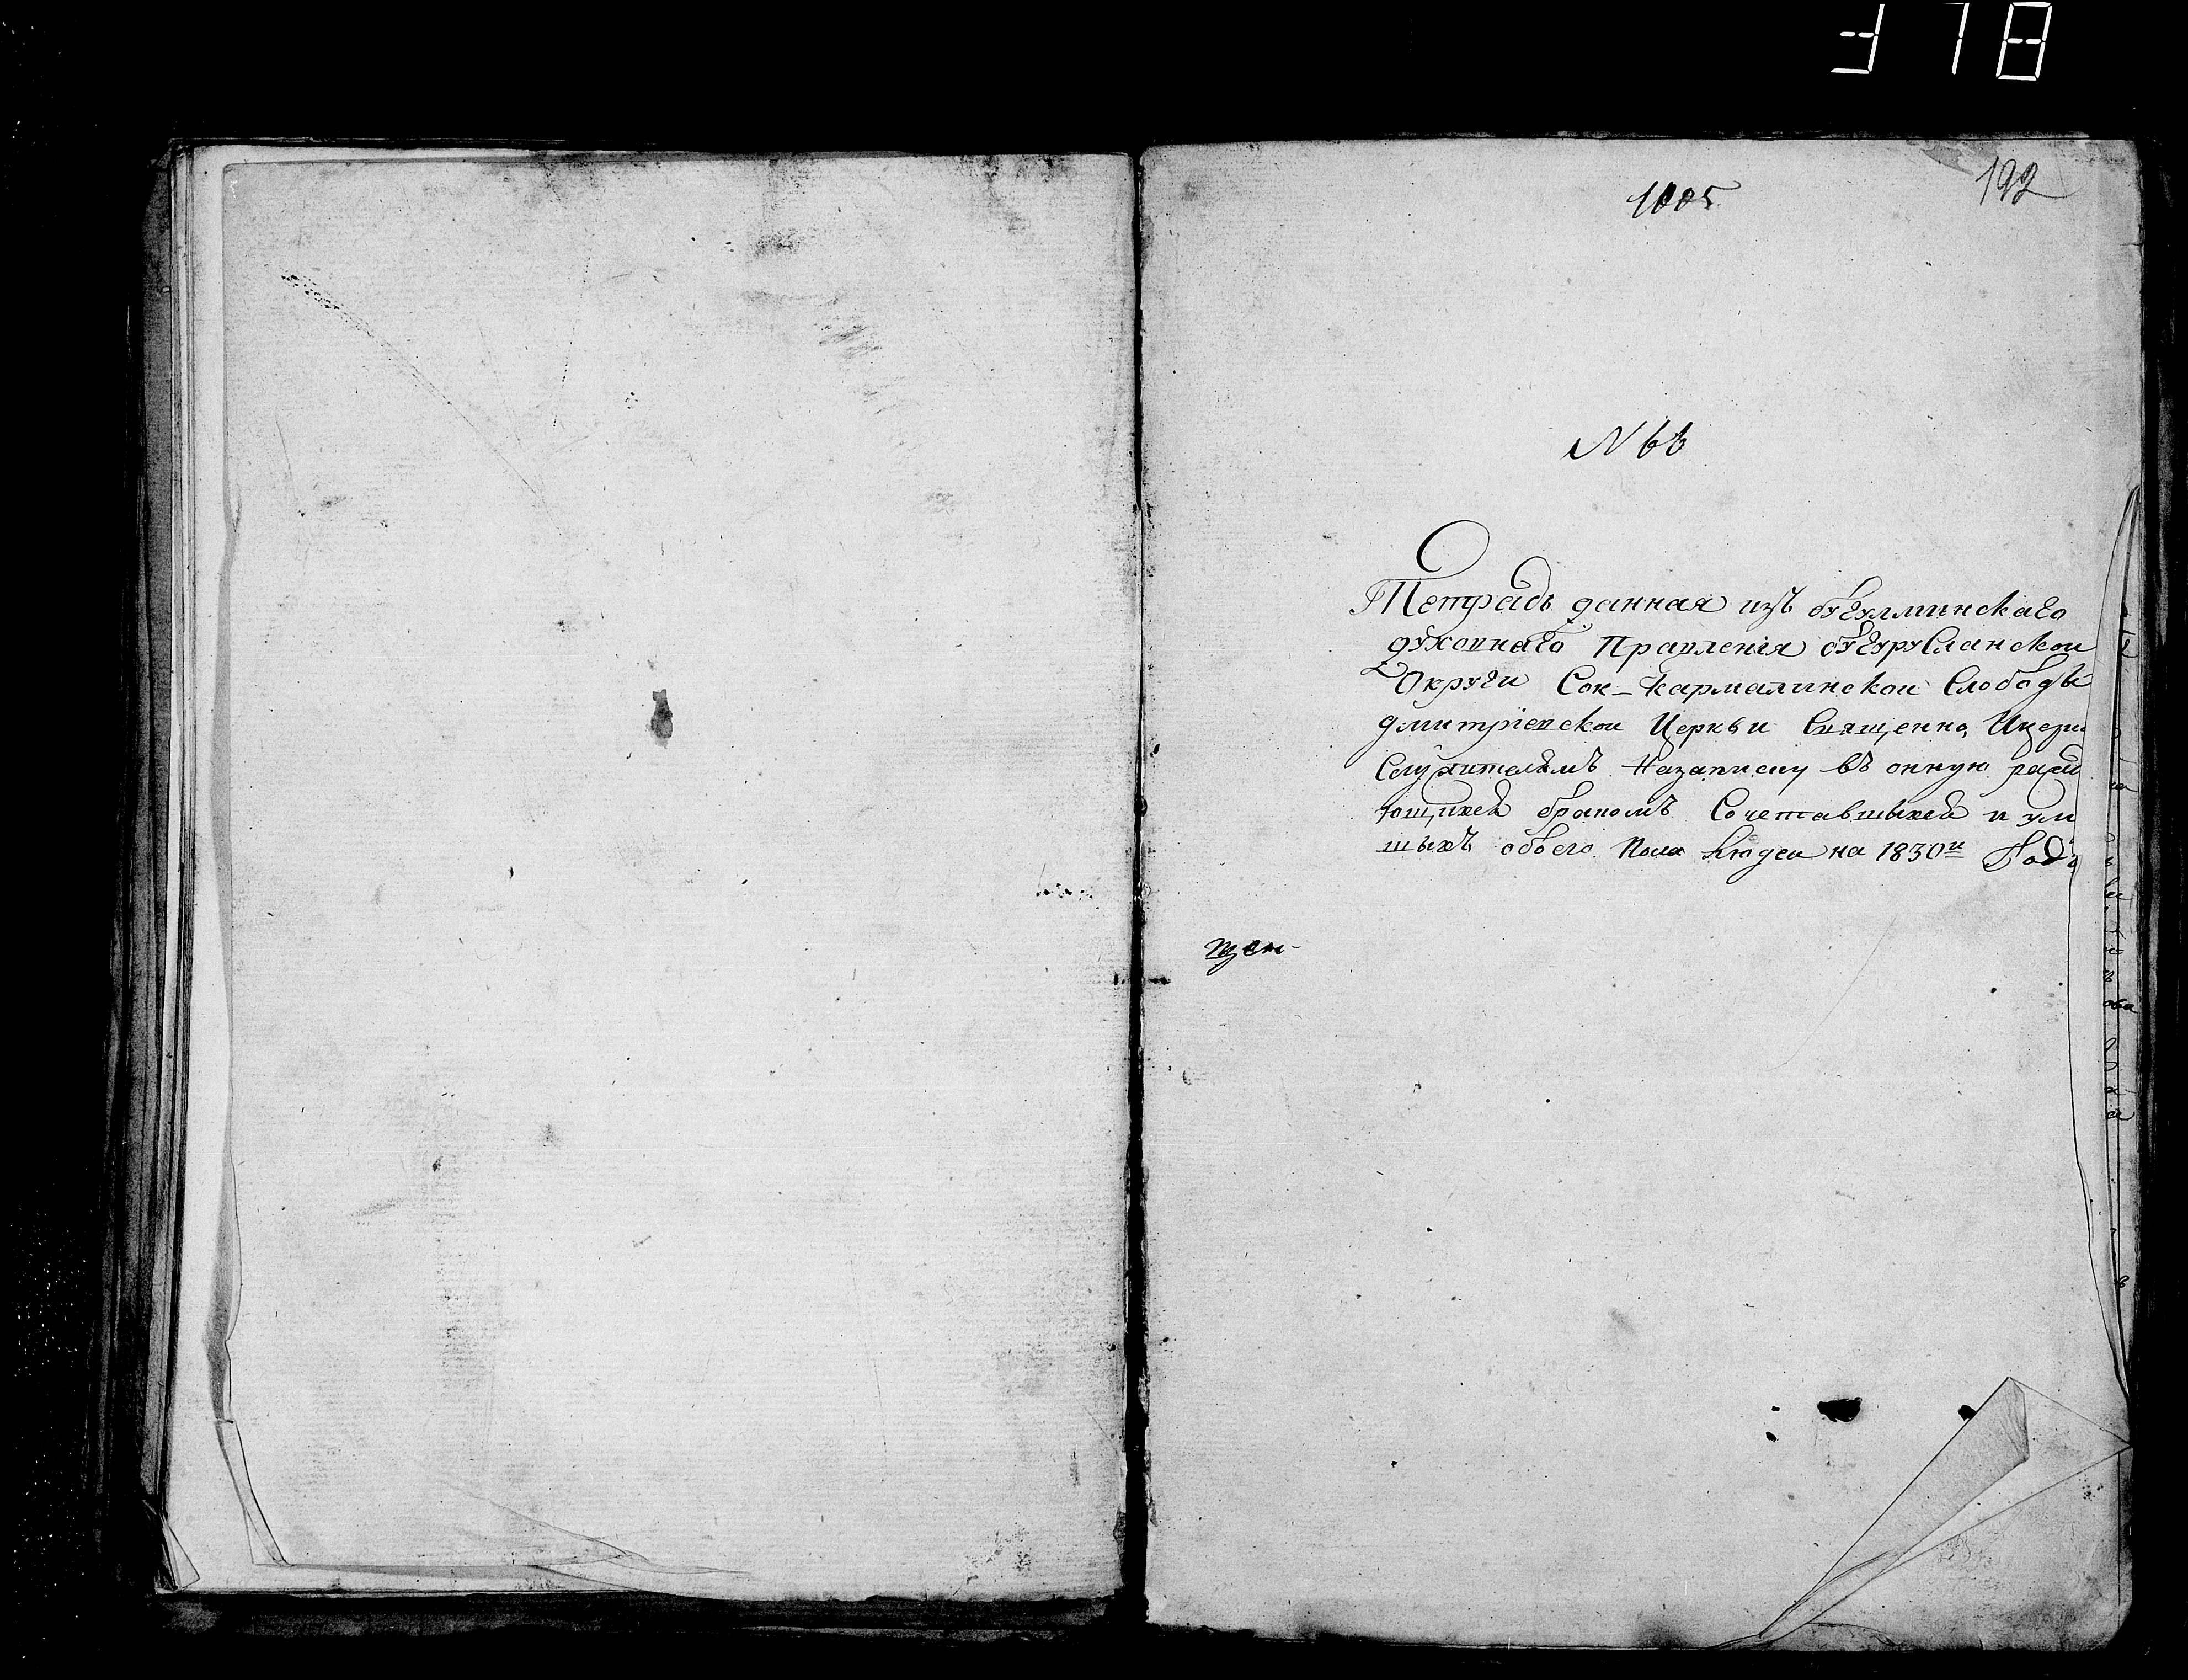 378
192
1005
N 66
Тетрадь данная изъ бугулминскаго
духовнаго Правления бугурусланской
Округи Сок-Кармалинской Слободы
дмитриевской Церкви Священно, Ицерк
Служителямъ Назаписку въ онную ражд
ющихся бракомъ Сочетавшыхся и ум
шыхъ обоего Пола Людеи на 1830й Годъ
щен-